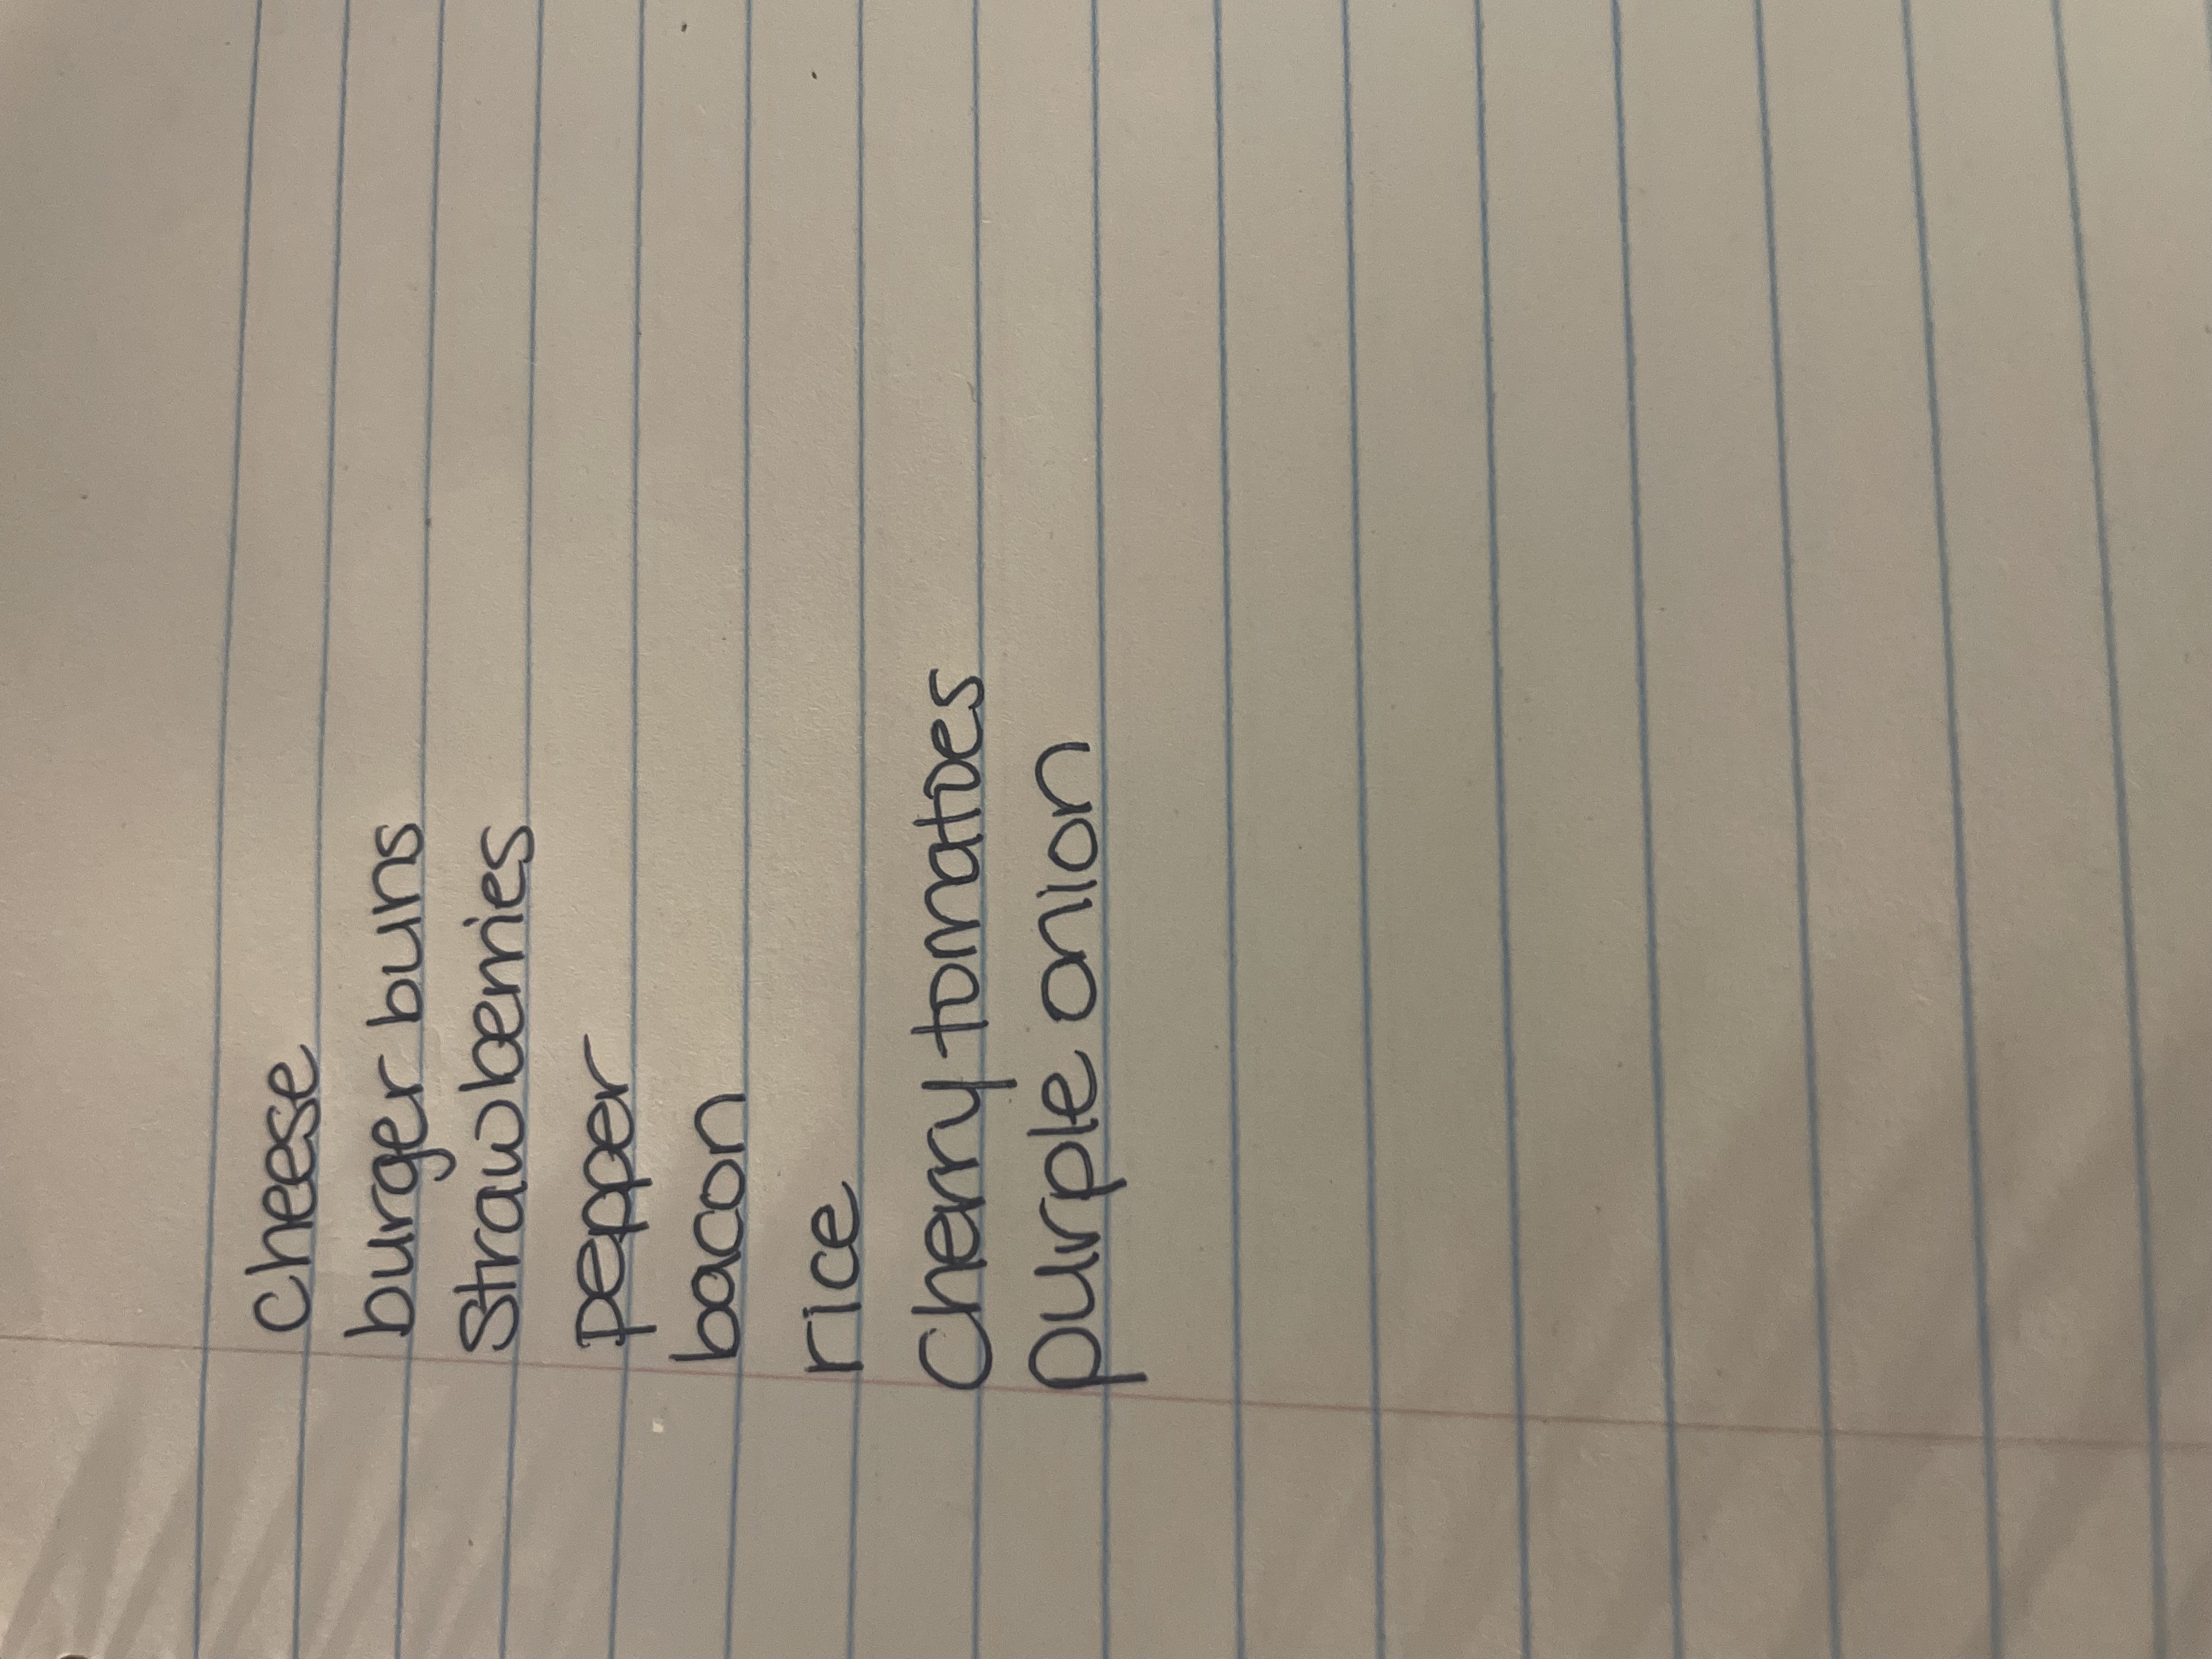 Cheese
burger buns
Strawberries
pepper
bacon
rice
Cherry tomatoes
purple onion